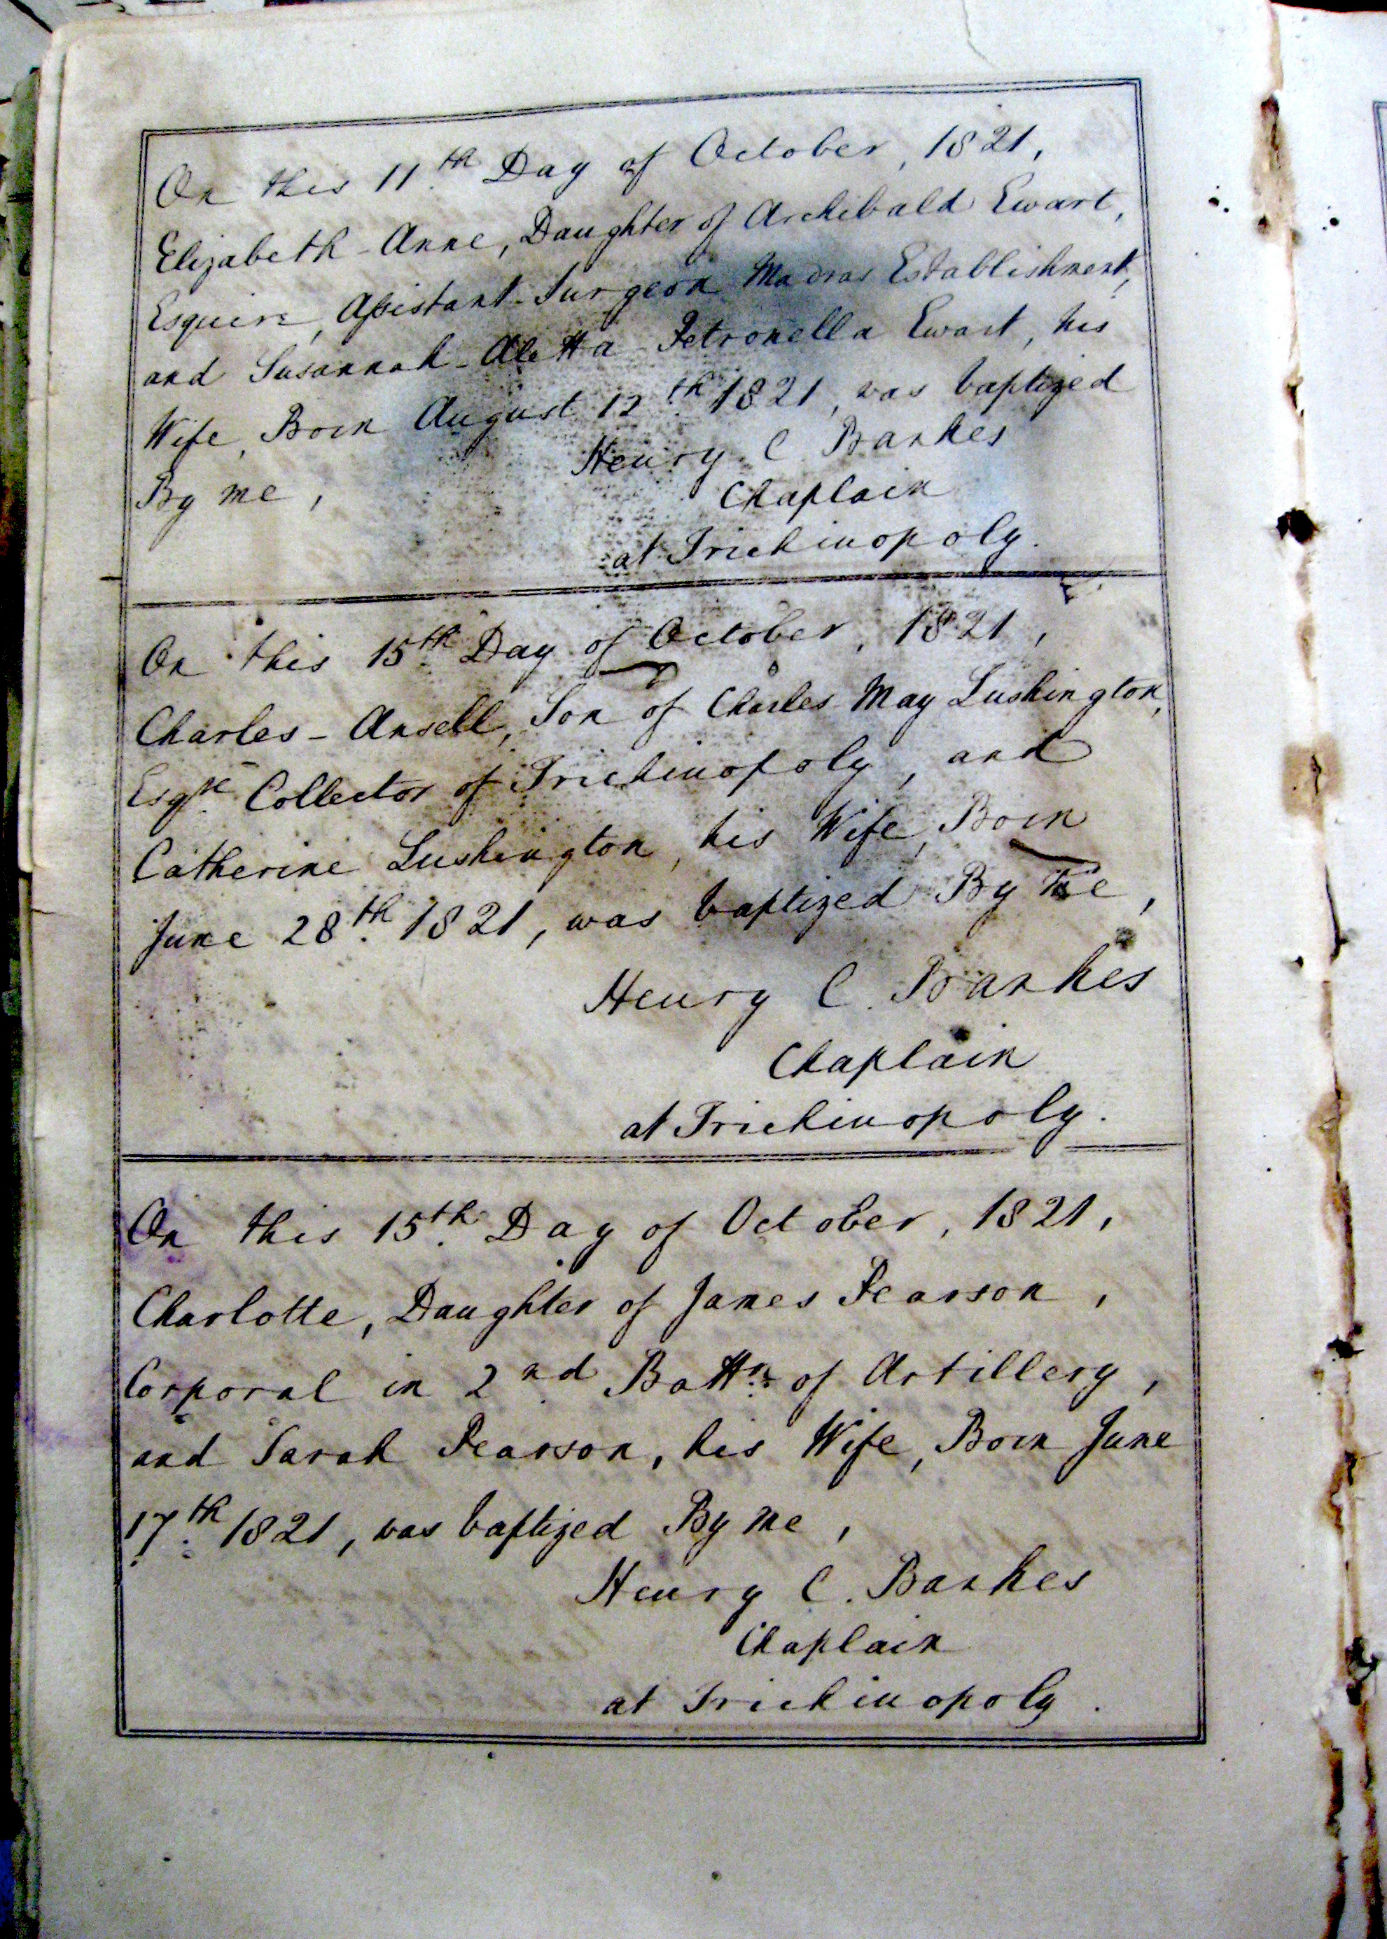 On this 11th Day of October, 1821,
Elizabeth-Anne, Daughter of Archibald Ewart,
Esquire, Assistant-Surgeon Madras Establishment,
and Susannah-Aletta Petronella Ewart, his
Wife, Born August 12th 1821, was baptized
By me,
Henry C. Bankes
Chaplain
at Trichinopoly.
On this 15th Day of October, 1821,
Charles-Ansell, Son of Charles May Lushington,
Esqre Collector of Trichinopoly, and
Catherine Lushington, his Wife, Born
June 28th 1821, was baptized By Me,
Henry C. Bankes
Chaplain
at Trichinopoly.
On this 15th Day of October, 1821,
Charlotte, Daughter of James Pearson,
Corporal in 2nd Battn. of Artillery,
and Sarah Pearson, his Wife, Born June
17th 1821, was baptized By me,
Henry C. Bankes
Chaplain
at Trichinopoly.